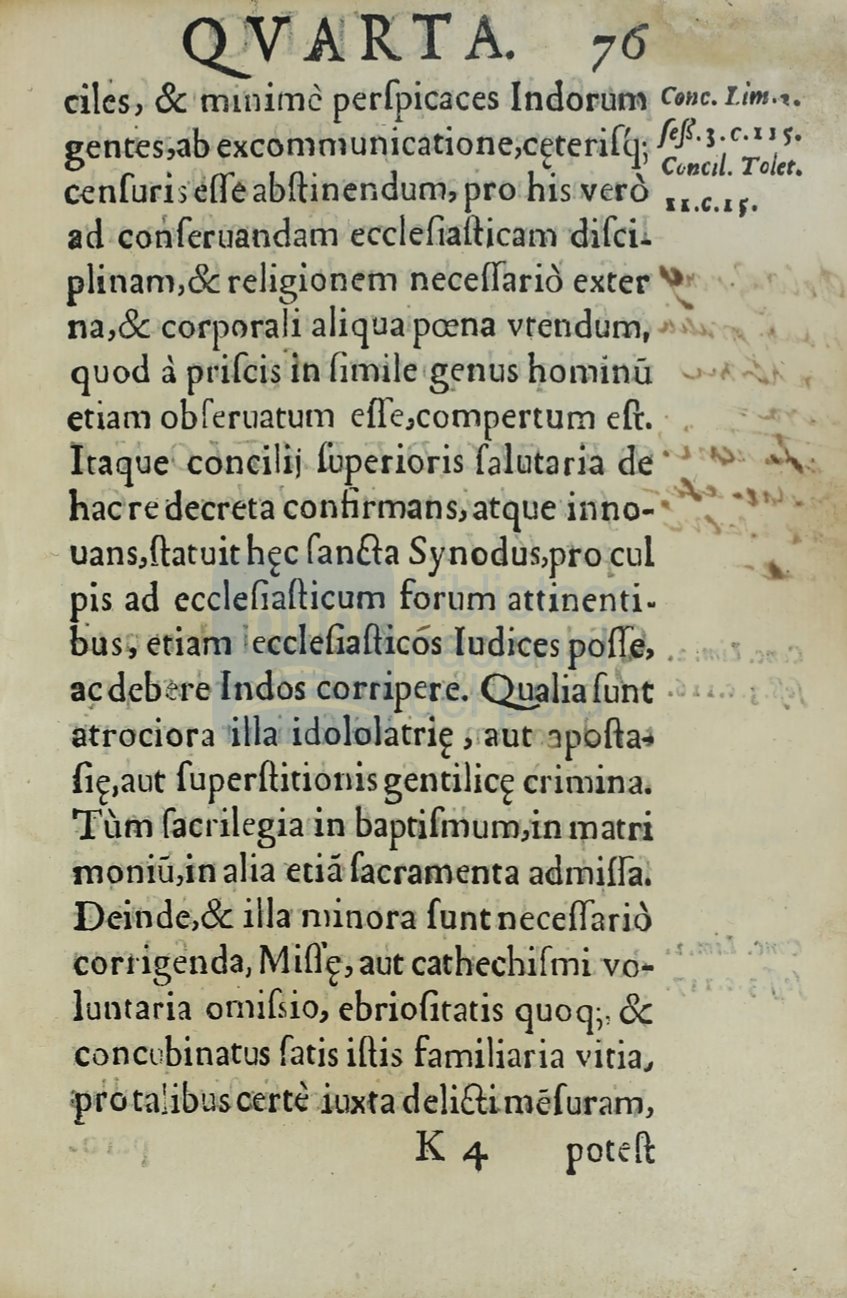 QVARTA. 76
ciles, & minimè perſpicaces Indorum
gentes,ab excommunicatione,cęteriſq́;
cenſuris eſſe abſtinendum, pro his verò
ad conſeruandam eccleſiaſticam diſci-
plinam,& religionem neceſſariò exter
na,& corporali aliqua pœna vtendum,
quod à priſcis in ſimile genus hominū
etiam obſeruatum eſſe,compertum eſt.
Itaque concilij ſuperioris ſalutaria de
hac re decreta confirmans,atque inno-
uans,ſtatuit hęc ſancta Synodus,pro cul
pis ad eccleſiaſticum forum attinenti-
bus, etiam eccleſiaſticos Iudices poſſe,
ac debere Indos corripere. Qualia ſunt
atrociora illa idololatrię, aut apoſta-
ſię,aut ſuperſtitionis gentilicę crimina.
Tùm ſacrilegia in baptiſmum,in matri
moniū,in alia etiā ſacramenta admiſſa.
Deinde,& illa minora ſunt neceſſariò
corrigenda, Miſſę, aut cathechiſmi vo-
luntaria omiſsio, ebrioſitatis quoq;, &
concubinatus ſatis iſtis familiaria vitia,
pro talibus certè iuxta delicti mēſuram,
K 4 poteſt
Conc. Lim.2.
ſeſſ.3.c.115.
Concil. Tolet.
11.c.15.